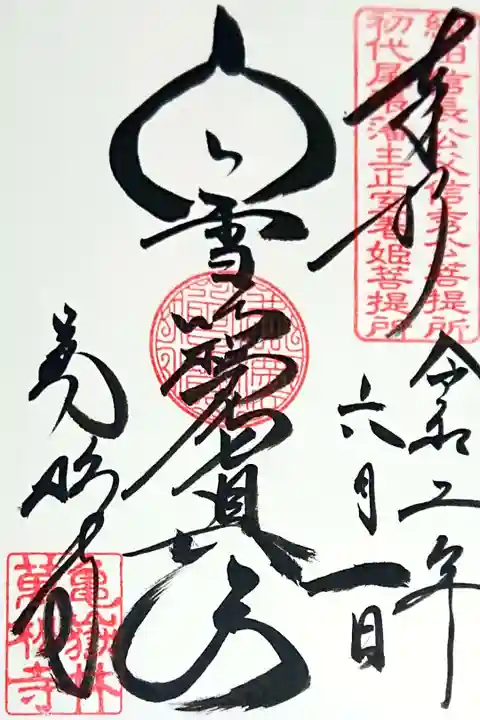 織田信長公父信秀公菩提所
初代尾張藩主正室春姫菩提所
奉拝
令和二年
六月一日
白雪吒枳尼真天
萬松寺
龜嶽林
萬松寺